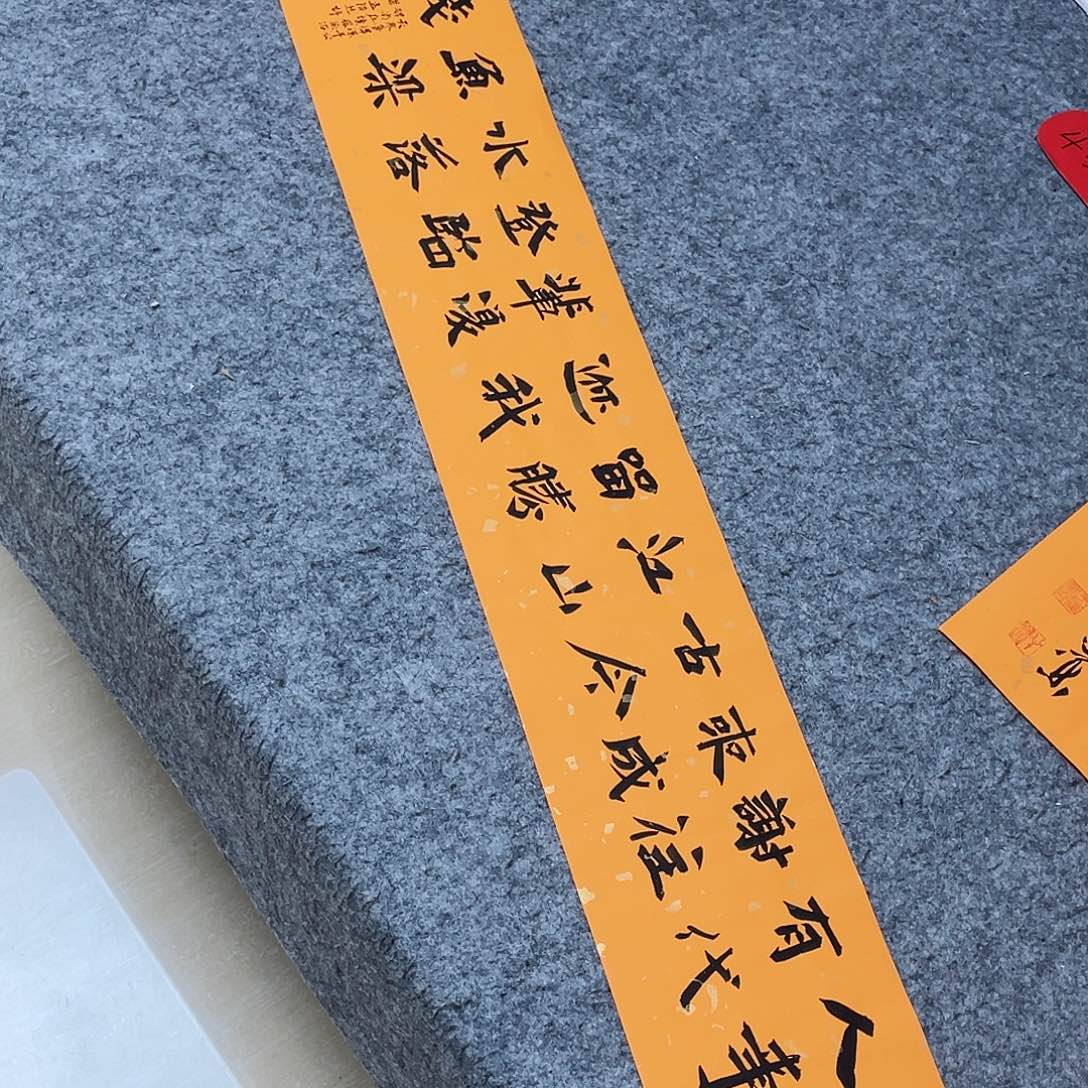 人事
有代
謝往
來成
古今
江山
留勝
迹我
輩復
登臨
水落
魚梁
淺